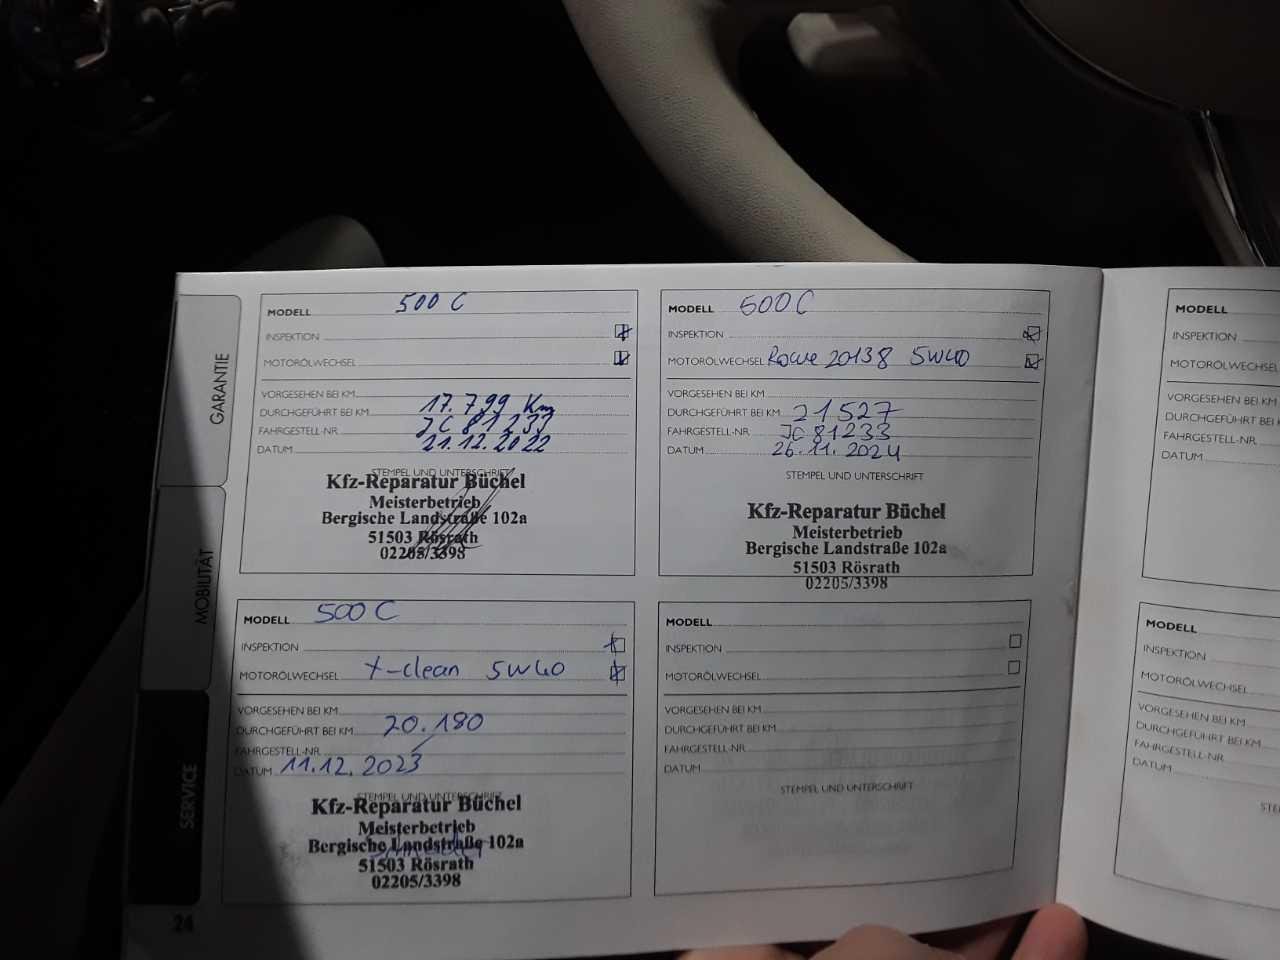 GARANTIE
MOBILITÄT
SERVICE
24
MODELL 500 C
INSPEKTION
MOTORÖLWECHSEL
VORGESEHEN BEI KM
DURCHGEFÜHRT BEI KM 17.799 Km
FAHRGESTELL-NR. JC81233
DATUM 21.12.2022
STEMPEL UND UNTERSCHRIFT
Kfz-Reparatur Büchel
Meisterbetrieb
Bergische Landstraße 102a
51503 Rösrath
02205/3398
MODELL 500 C
INSPEKTION
MOTORÖLWECHSEL Rowe 20138 5W40
VORGESEHEN BEI KM
DURCHGEFÜHRT BEI KM 21527
FAHRGESTELL-NR. JC81233
DATUM 26.11.2024
STEMPEL UND UNTERSCHRIFT
Kfz-Reparatur Büchel
Meisterbetrieb
Bergische Landstraße 102a
51503 Rösrath
02205/3398
MODELL 500 C
INSPEKTION
MOTORÖLWECHSEL X-clean 5W40
VORGESEHEN BEI KM
DURCHGEFÜHRT BEI KM 20.180
FAHRGESTELL-NR.
DATUM 11.12.2023
STEMPEL UND UNTERSCHRIFT
Kfz-Reparatur Büchel
Meisterbetrieb
Bergische Landstraße 102a
51503 Rösrath
02205/3398
MODELL
INSPEKTION
MOTORÖLWECHSEL
VORGESEHEN BEI KM
DURCHGEFÜHRT BEI KM
FAHRGESTELL-NR.
DATUM
STEMPEL UND UNTERSCHRIFT
MODELL
INSPEKTION
MOTORÖLWECHSEL
VORGESEHEN BEI KM
DURCHGEFÜHRT BEI K
FAHRGESTELL-NR.
DATUM
MODELL
INSPEKTION
MOTORÖLWECHSEL
VORGESEHEN BEI KM
DURCHGEFÜHRT BEI KM
FAHRGESTELL-NR.
DATUM
STE